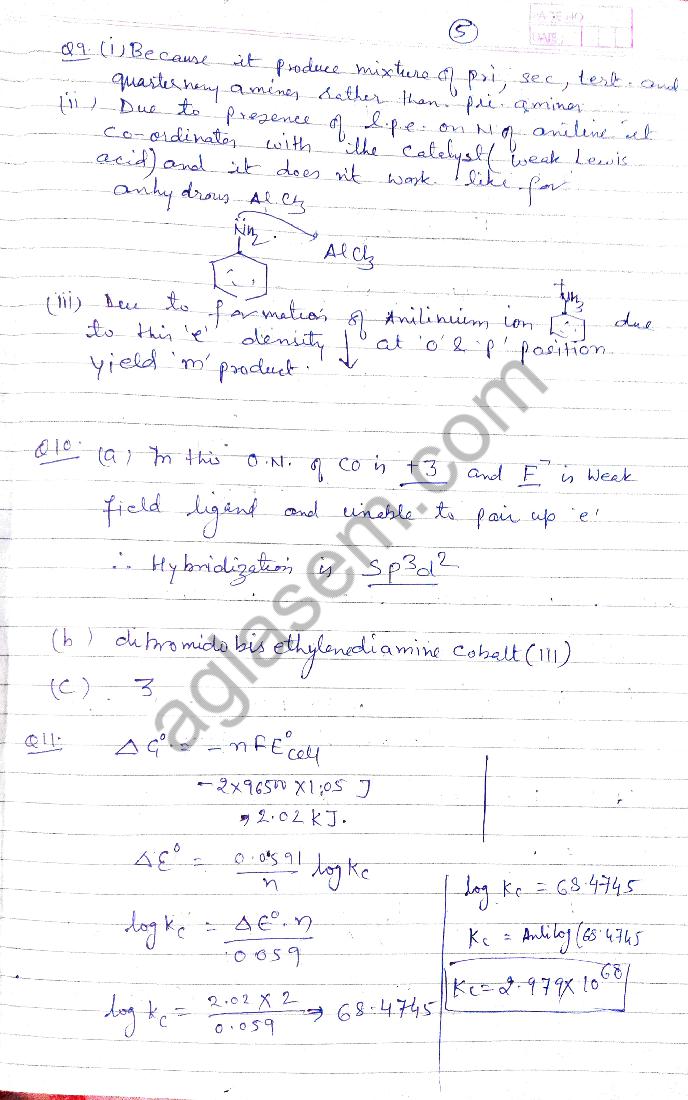 5
Q9. (i) Because it produce mixture of pri, sec, tert. and
quarternery amines rather than pri. amines
(ii) Due to presence of l.p.e. on N of aniline it
co-ordinates with the catalyst (weak Lewis
acid) and it does n't work like for
anhydrous AlCl3
NH2.
AlCl3
(iii) Due to formation of Anilinium ion +NH3 due
to this 'e' density ↓ at 'o' & 'p' position
yield 'm' product.
Q10. (a) In this O.N. of CO is +3 and F⁻ is weak
field ligand and unable to pair up e'
∴ Hybridization is sp³d²
(b) dibromidobis ethylenediamine cobalt (III)
(C) 3
Q11. ΔG° = -nFE°cell
-2×96500×1.05 J
2.02 KJ.
ΔE° = 0.0591/n log Kc
log Kc = ΔE°.n/0.059
log Kc = 2.02 × 2/0.059 → 68.4745
log Kc = 68.4745
Kc = Antilog (68.4745
Kc = 2.979×10⁶⁸
aglasem.com